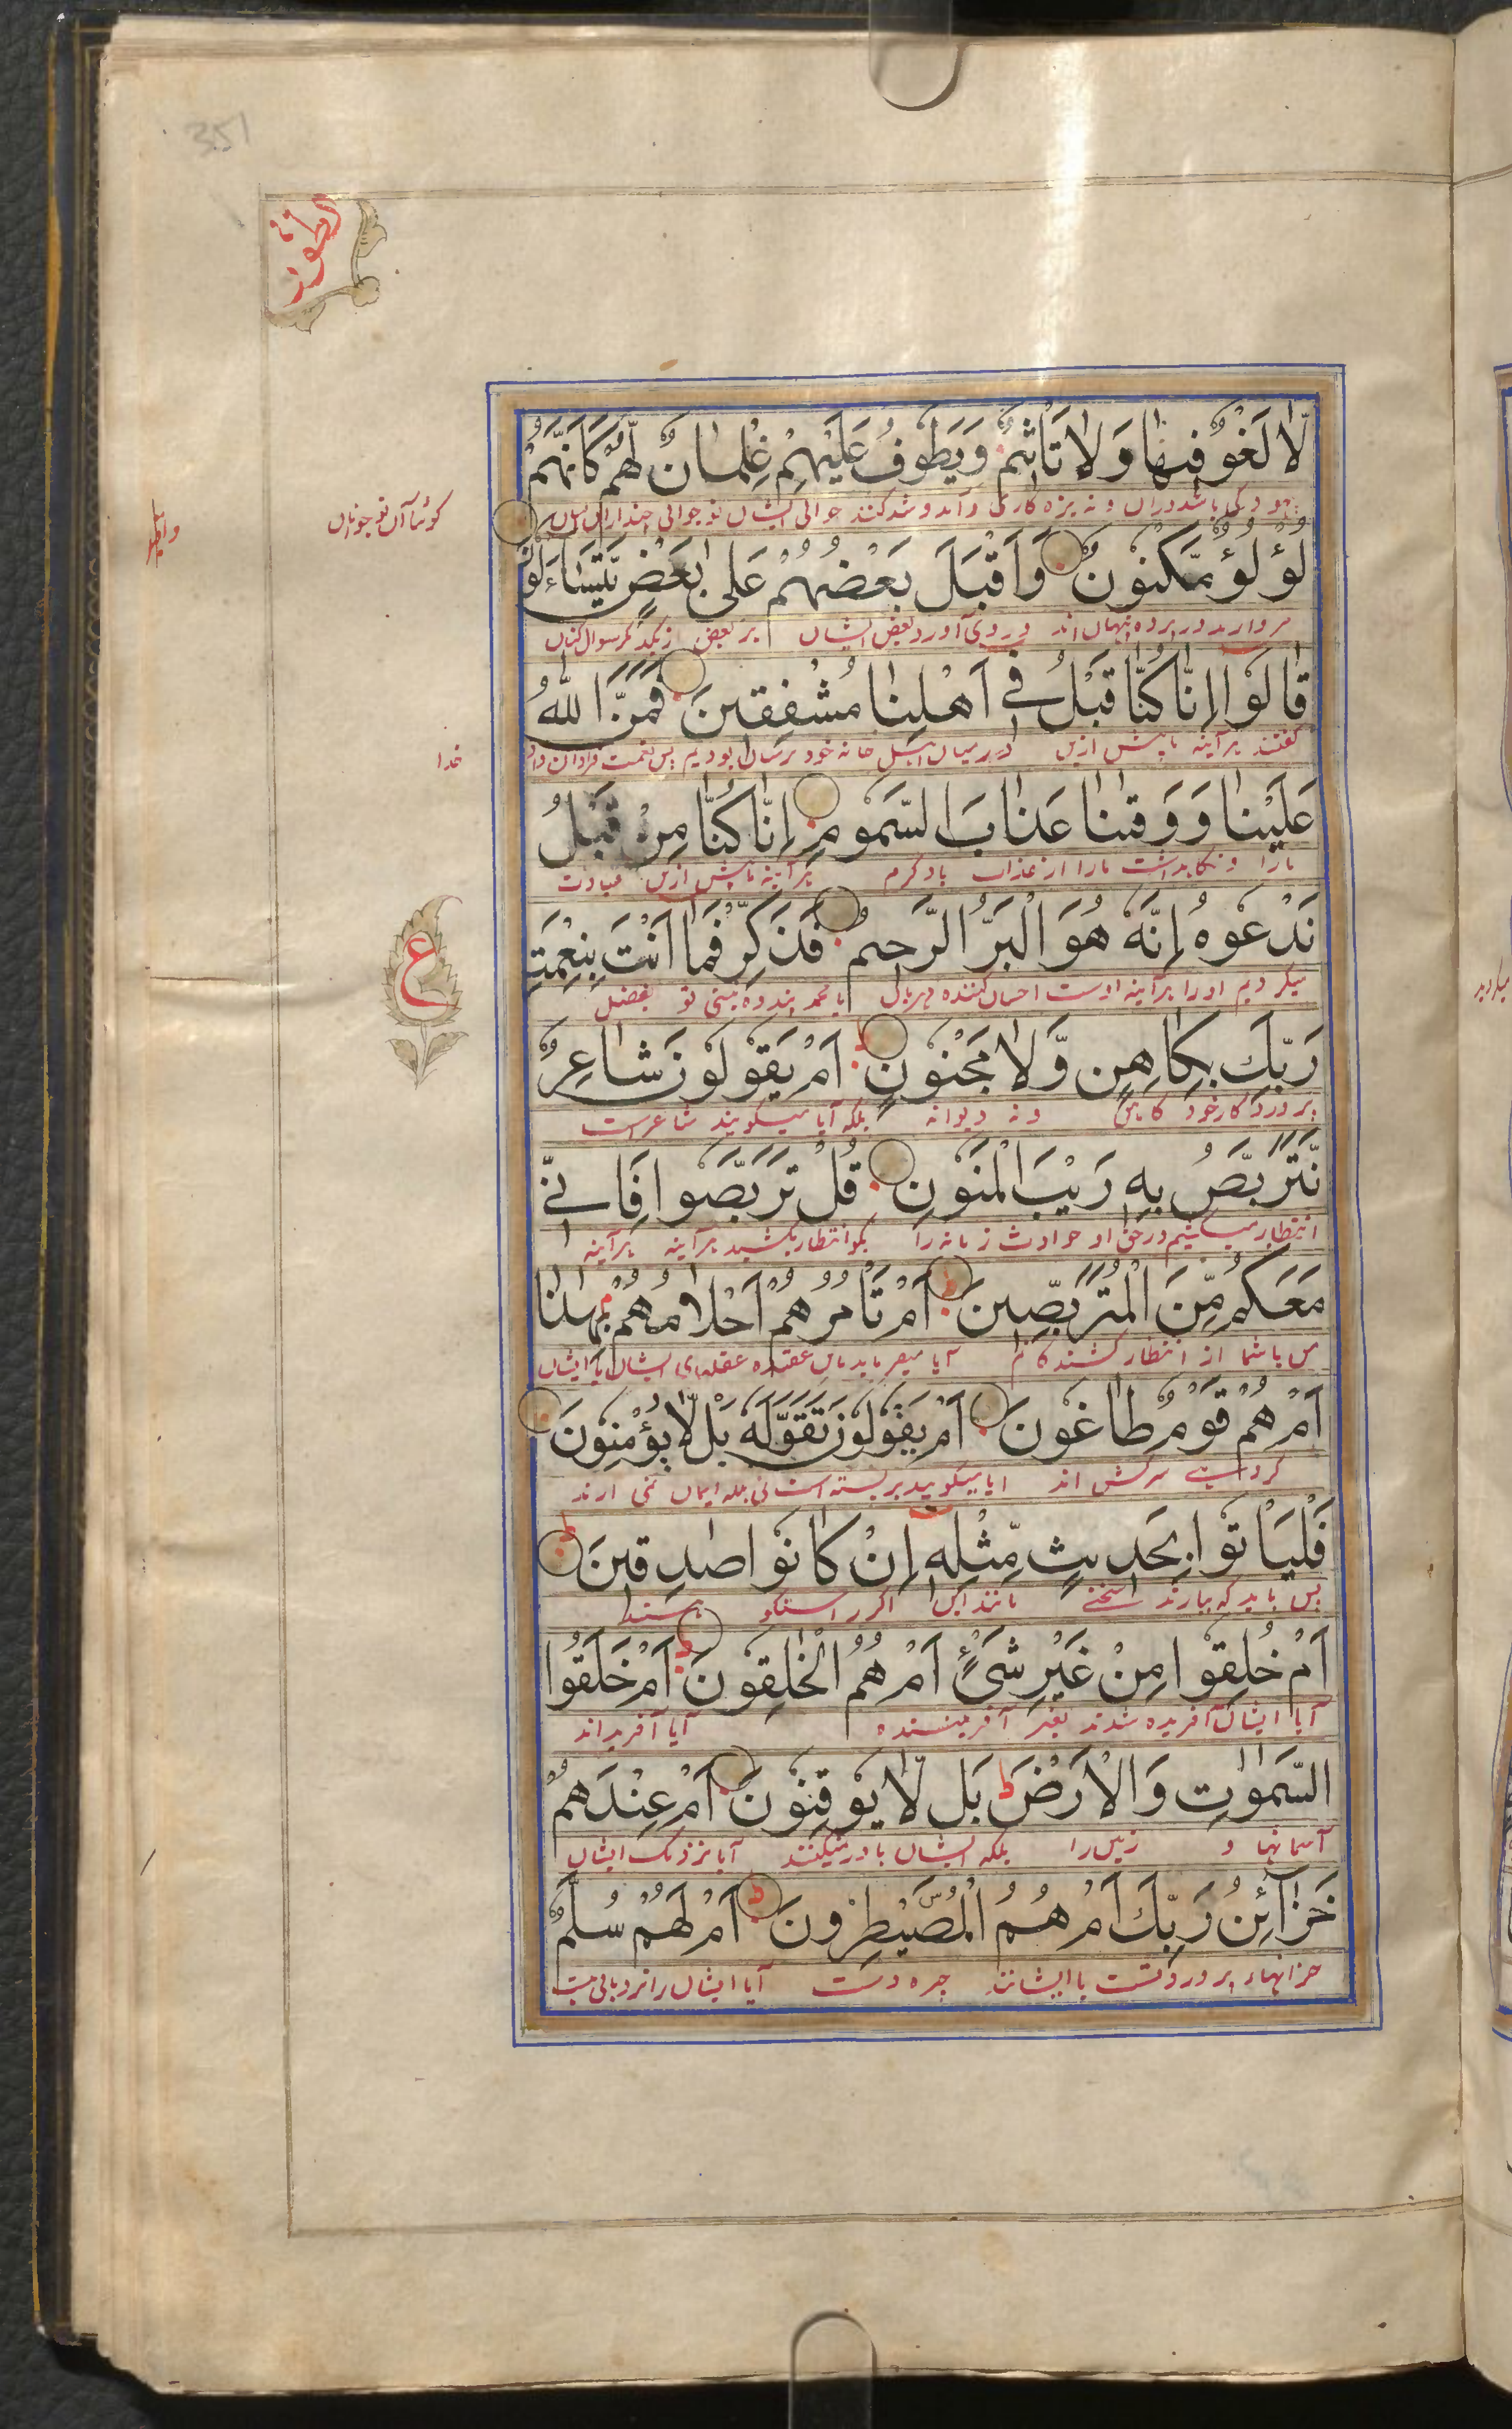 351
والطور
لَّا لَغْوٌ فِيهَا وَلَا تَأْثِيمٌ وَيَطُوفُ عَلَيْهِمْ غِلْمَانٌ لَّهُمْ كَأَنَّهُمْ
بیهودگی باشد دران و نه بزه کاری و آمد و شد کنند حوالی ایشان نوجوانی چند
گویا آن نوجوانان
لُؤْلُؤٌ مَّكْنُونٌ وَأَقْبَلَ بَعْضُهُمْ عَلَىٰ بَعْضٍ يَتَسَاءَلُونَ
مروارید در پرده نهان اند و روی آورد بعض ایشان بر بعض دیگر سوال کنان
قَالُوا إِنَّا كُنَّا قَبْلُ فِي أَهْلِنَا مُشْفِقِينَ فَمَنَّ اللَّهُ
گفتند هر آینه ما پیش ازین در میان اهل خانه خود ترسان بودیم پس نعمت فراوان داد
خدا
عَلَيْنَا وَوَقٰىنَا عَذَابَ السَّمُومِ إِنَّا كُنَّا مِنْ قَبْلُ
مارا و نگاهداشت مارا از عذاب باد گرم هر آینه ما پیش ازین عبادت
نَدْعُوهُ إِنَّهُ هُوَ الْبَرُّ الرَّحِيمُ فَذَكِّرْ فَمَا أَنْتَ بِنِعْمَتِ
میکردیم اورا هر آینه اوست احسان کننده مهربان یا محمد پند ده نیستی تو بفضل
ع
رَبِّكَ بِكَاهِنٍ وَّلَا مَجْنُونٍ أَمْ يَقُولُونَ شَاعِرٌ
پروردگار خود کاهن و نه دیوانه بلکه آیا میگویند شاعر است
نَّتَرَبَّصُ بِهِ رَيْبَ الْمَنُونِ قُلْ تَرَبَّصُوا فَإِنِّي
انتظار میکشیم در حق او حوادث زمانه را بگو انتظار بکشید هر آینه هر آینه
مَعَكُمْ مِّنَ الْمُتَرَبِّصِينَ أَمْ تَأْمُرُهُمْ أَحْلَامُهُمْ بِهٰذَا
من با شما از انتظار کشندگانم آیا میفرماید باین عقیده عقلهای ایشان یا ایشان
أَمْ هُمْ قَوْمٌ طَاغُونَ أَمْ يَقُولُونَ تَقَوَّلَهُ بَلْ لَّا يُؤْمِنُونَ
گروهی سرکش اند آیا میگویند بربسته است بلکه ایمان نمی آرند
فَلْيَأْتُوا بِحَدِيثٍ مِّثْلِهِ إِنْ كَانُوا صٰدِقِينَ
پس باید که بیارند سخنے مانند این اگر راستگو هستند
أَمْ خُلِقُوا مِنْ غَيْرِ شَيْءٍ أَمْ هُمُ الْخٰلِقُونَ أَمْ خَلَقُوا
آیا ایشان آفریده شدند بغیر آفریننده آیا آفریده اند
السَّمٰوٰتِ وَالْأَرْضَ بَلْ لَّا يُوقِنُونَ أَمْ عِنْدَهُمْ
آسمانها و زمین را بلکه ایشان باور نمیکنند آیا نزدیک ایشان
خَزَائِنُ رَبِّكَ أَمْ هُمُ الْمُصَۜيْطِرُونَ أَمْ لَهُمْ سُلَّمٌ
خزانهاء پروردگار تست یا ایشانند چیره دست آیا ایشان را نردبانی هست